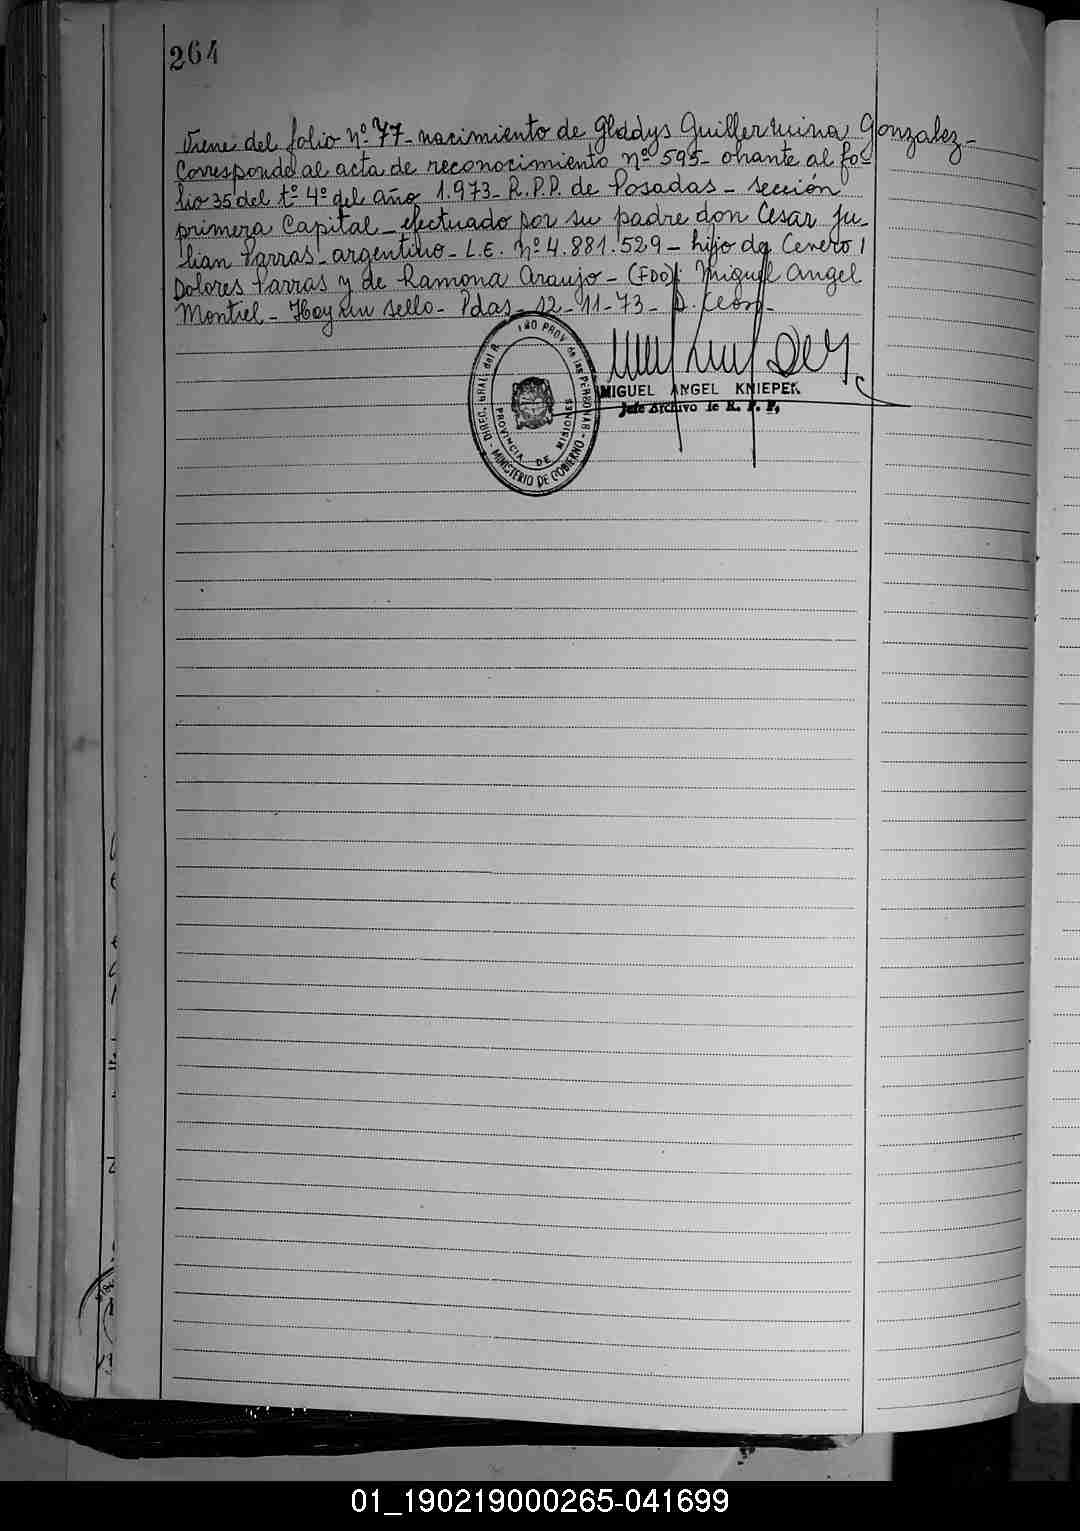 264
Viene del folio Nº 77 - nacimiento de Gladys Guillermina Gonzalez -
Corresponde al acta de reconocimiento nº 595 - obrante al fo-
lio 35 del tº 4º del año 1.973 - R.P.P. de Posadas - sección
primera Capital - efectuado por su padre don Cesar Ju-
lian Parras - argentino - L.E. Nº 4.881.529 - hijo de
Dolores Parras y de Ramona Araujo - (FDO): Miguel Angel
Montiel - Hay un sello - Pdas - 12 - 11 - 73 - D. Leon -
DIREC. GRAL. del R. PROV. de las PERSONAS
MINISTERIO DE GOBIERNO
PROVINCIA DE MISIONES
MIGUEL ANGEL KNIEPER
Jefe Archivo de R. P. P.
01_190219000265-041699